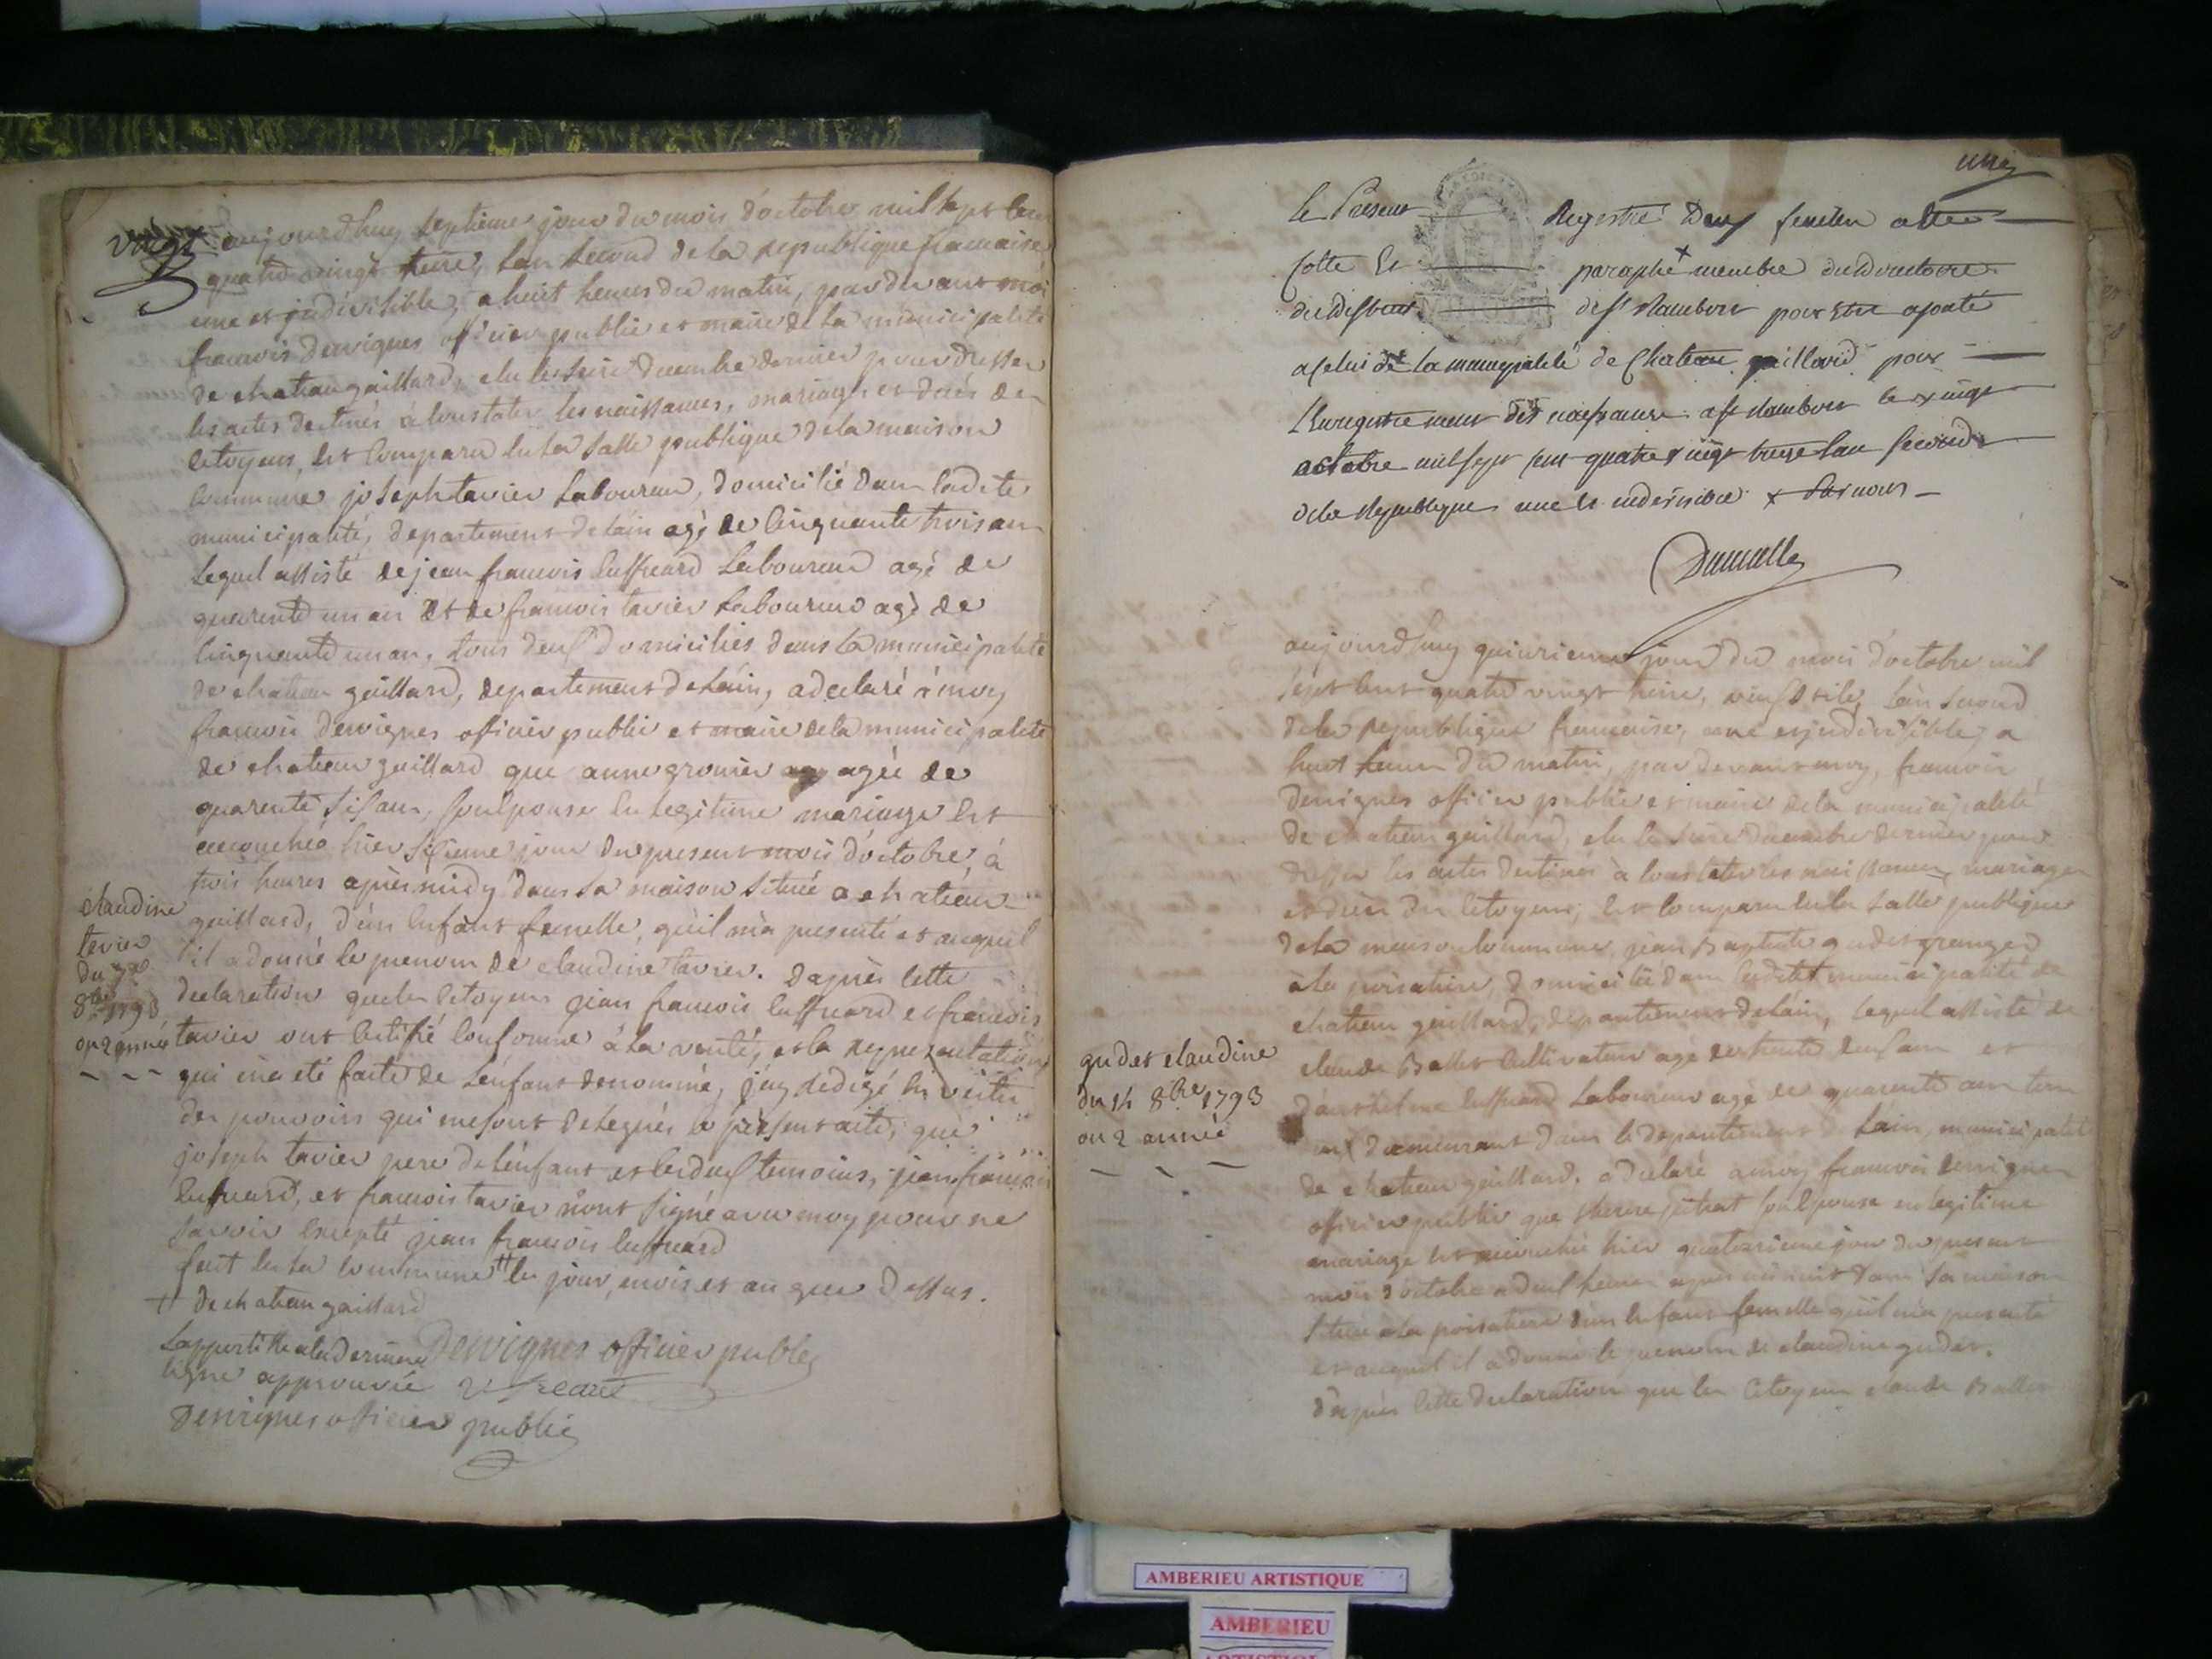 vingt
aujourdhuy septieme jour du mois d'octobre mil sept cent
quatre vingt treize, lan second de la republique francaise
une et indivisible, a huit heures du matin, par devant moi
francois dervignes officier public et maire de la municipalité
de chateaugaillard, elu le seize decembre dernier pour dresser
les actes destinés a constater les naissances, mariages et décès des
citoyens, est comparu en la salle publique de la maison
commune joseph tavier laboureur, domicilié dans ladite
municipalité, departement de lain agé de cinquante trois ans
lequel assisté de jean francois cuffneard laboureur agé de
quarente un an et de francois tavier laboureur agé de
cinquante un an, tous deux domiciliés dans la municipalité
de chateau gaillard, departement de láin, a declaré à moy
francois dervignes officier public et maire de la municipalité
de chateau gaillard que anne gronier agée de
quarente six ans, son epouse en legitime mariage est
accouchée hier sixieme jour du present mois d'octobre, à
trois heures après midy dans sa maison située a chateau
gaillard, d'un enfant femelle, qu'il m'a presenté et auquel
il a donné le prenom de claudine tavier. d'après cette
declaration que les citoyens jean francois cuffneard et francois
tavier ont certifié conforme à la verité, et la representation
qui m'a eté faite de l'enfant denommé, j'ay redigé en vertu
des pouvoirs qui me sont delegués le present acte, que
joseph tavier pere de l'enfant et les deux temoins, jean francois
cuffneard, et francois tavier n'ont signé avec moy pour ne
savoir excepté jean francois cuffneard
fait en la commune les jour, mois et an que dessus.
de chateau gaillard
ligne approuvée
Dervignes officier public
Dervignes officier public
claudine
tavier
du 7e
8bre 1793
ou 2 année
le Present Registre Deux feuillets a été
Cotté Et paraphé membre du Directoire
du District de St Rambert pour Etre ajouté
a celui de la municipalité de Chateau gaillard pour
l'Enregistrement des naissances. a St Rambert le vingt
octobre mil sept cent quatre vingt treize lan second
de la Republique une et indivisible x Par nous
aujourdhuy quinzieme jour du mois d'octobre mil
sept cent quatre vingt treize, vieux stile, lan second
de la republique francaise, une et indivisible, a
huit heures du matin, par devant moy, francois
dervignes officier public et maire de la municipalité
de chateau gaillard, elu le seize decembre dernier pour
dresser les actes destinés à constater les naissances, mariages
et décès des citoyens, est comparu en la salle publique
de la maison commune, jean Baptiste gudet granger
à la poisatiere, domicilié dans ladite municipalité de
chateau gaillard, departement de láin, lequel assisté de
claude Ballet cultivateur agé de trente deux ans et
d'anthelme cuffneard laboureur agé de quarente ans tous
deux demeurant dans le departement de lain, municipalité
de chateau gaillard. a declaré a moy francois dervignes
officier public que son epouse en legitime
mariage est accouchée hier quatorzieme jour du present
mois d'octobre a deux heures apres minuit dans sa maison
située a la poisatiere d'un enfant femelle qu'il m'a presenté
et auquel il a donné le prenom de claudine gudet.
d'après cette declaration que les citoyens claude Ballet
gudet claudine
du 14 8bre 1793
ou 2 année
AMBERIEU ARTISTIQUE
AMBERIEU
ARTISTIQUE